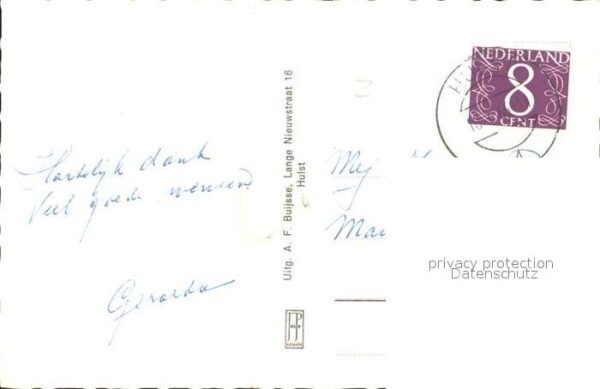 Hartelijk dank
Veel goede wensen
Gerarda
Uitg. A. F. Buijsse, Lange Nieuwstraat 16
Hulst
NEDERLAND
8
CENT
HU
Mej
privacy protection
Datenschutz